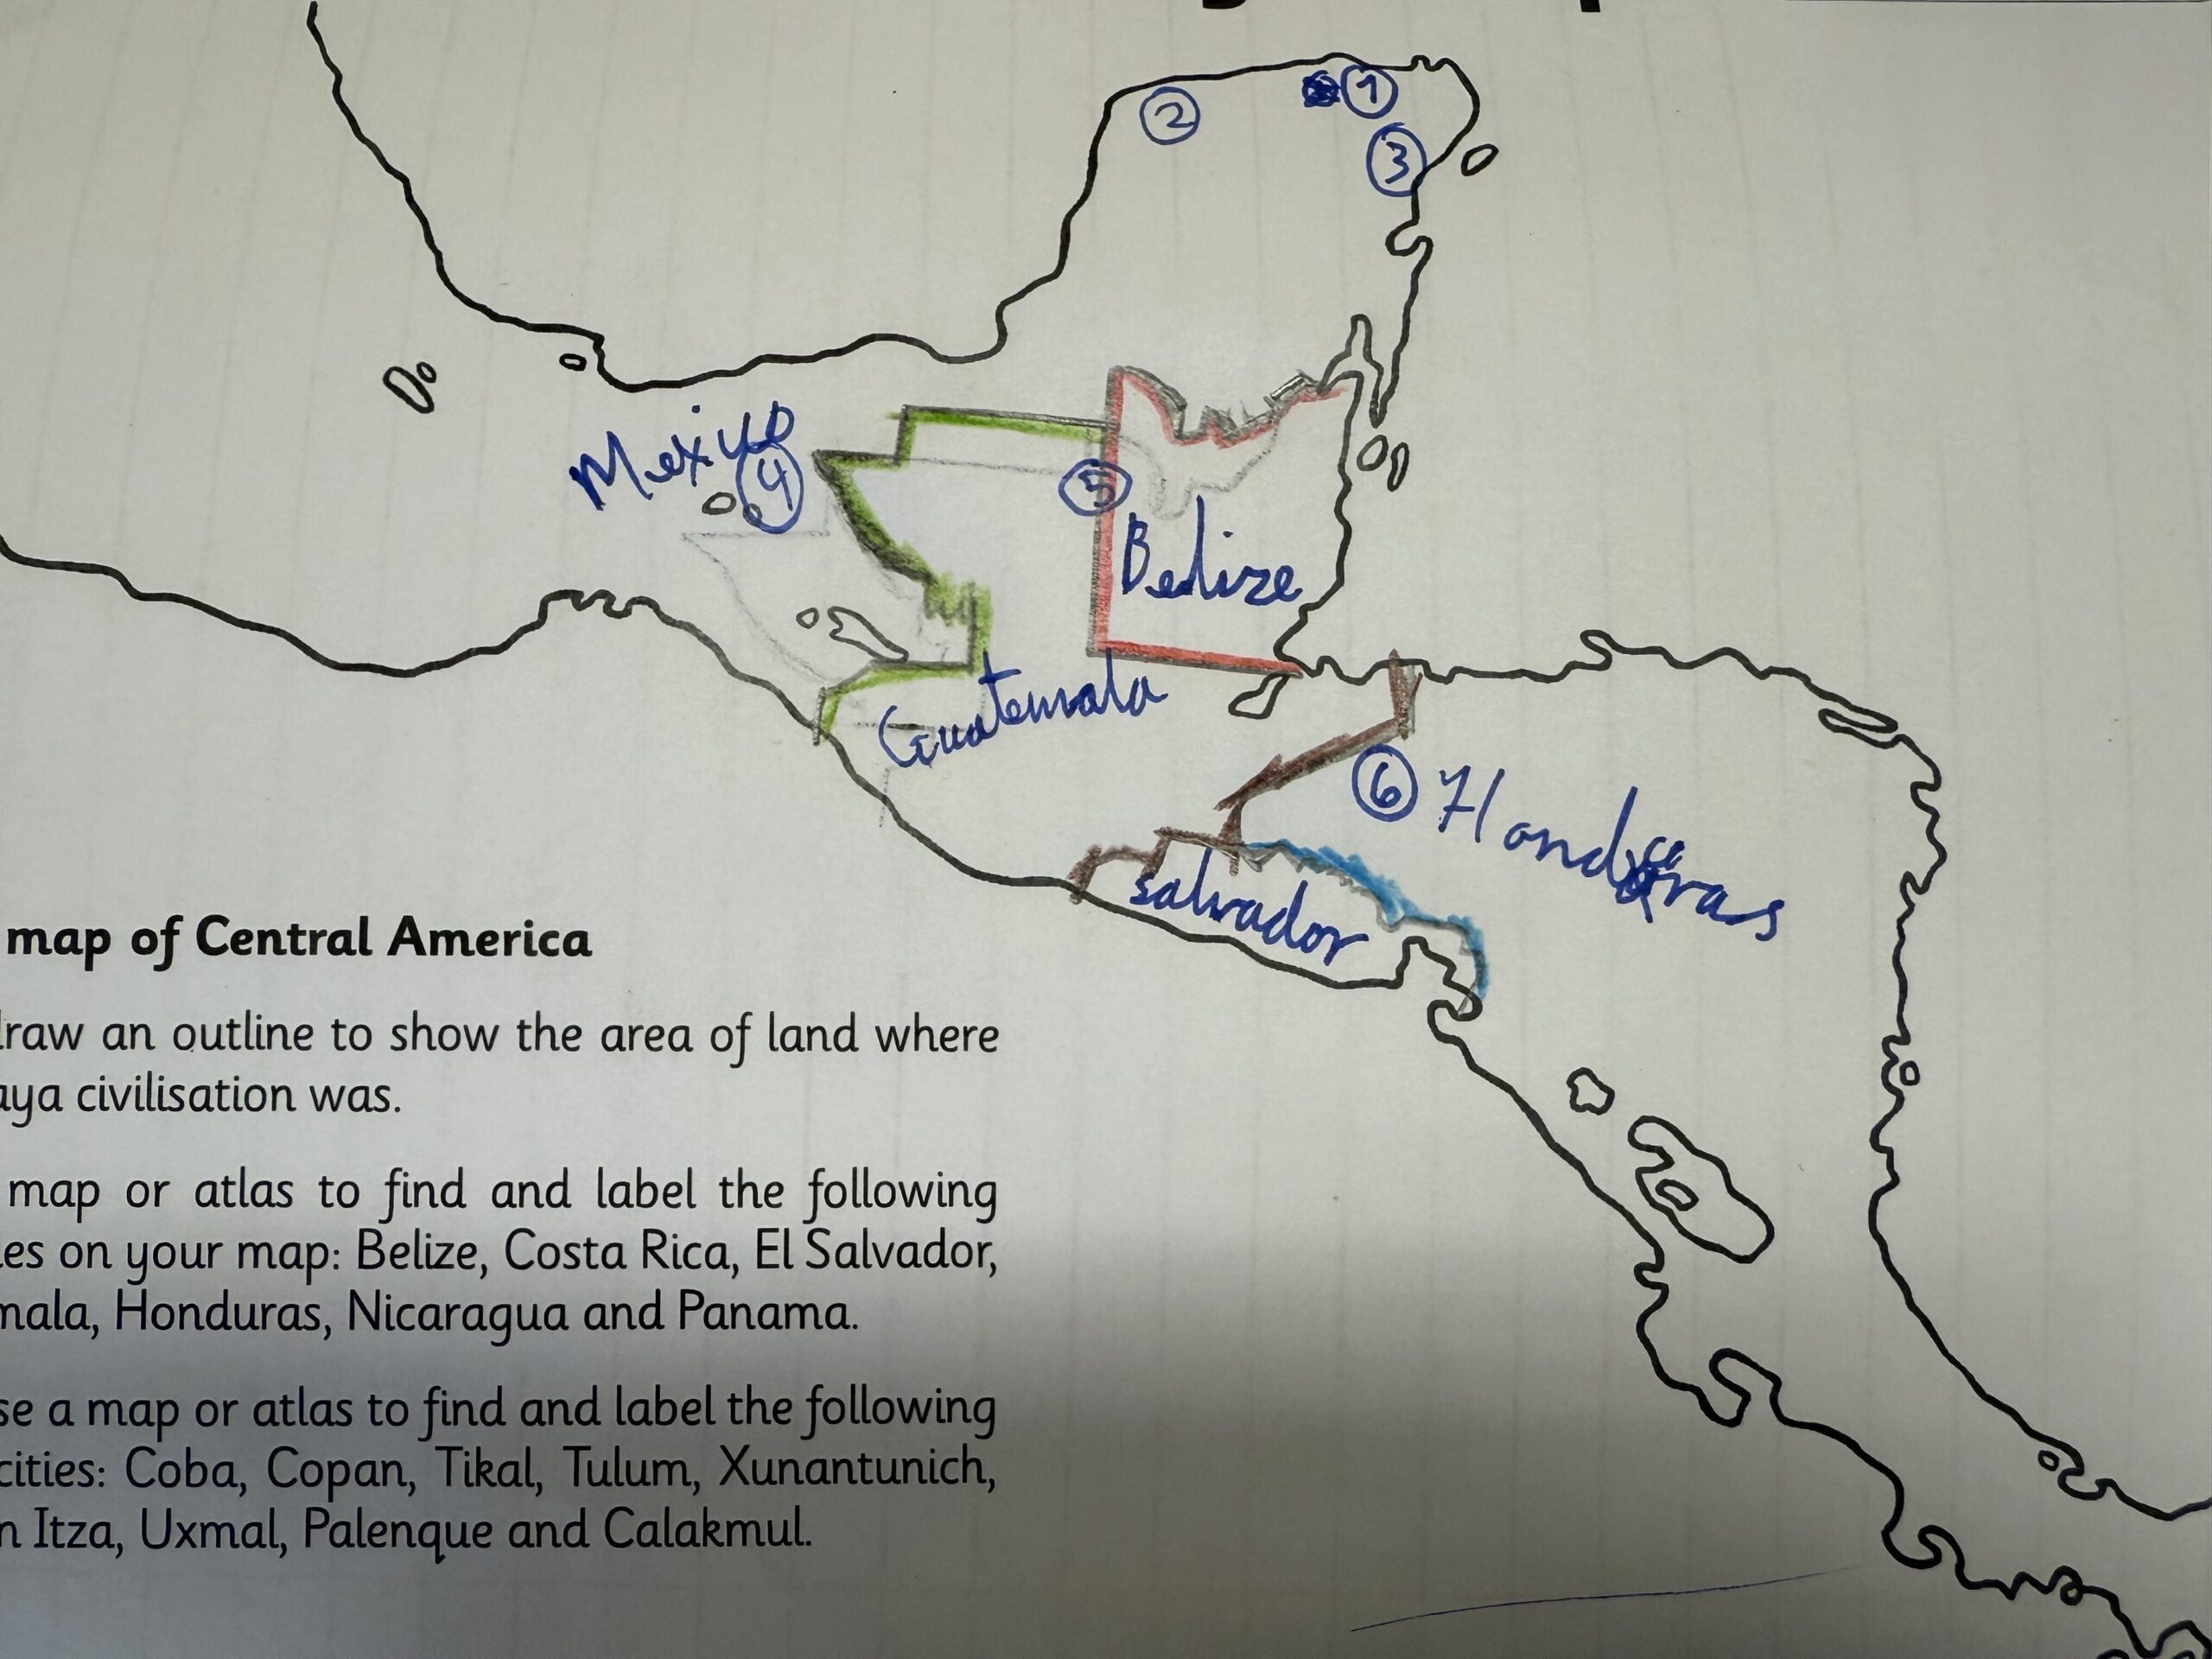 2
1
3
Mexico
4
5
Belize
Guatemala
6 Honduras
salvador
map of Central America
raw an outline to show the area of land where
aya civilisation was.
map or atlas to find and label the following
es on your map: Belize, Costa Rica, El Salvador,
mala, Honduras, Nicaragua and Panama.
se a map or atlas to find and label the following
cities: Coba, Copan, Tikal, Tulum, Xunantunich,
n Itza, Uxmal, Palenque and Calakmul.